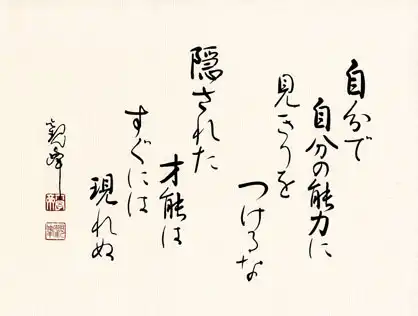 自分で
自分の能力に
見きりを
つけるな
隠された
才能は
すぐには
現れぬ